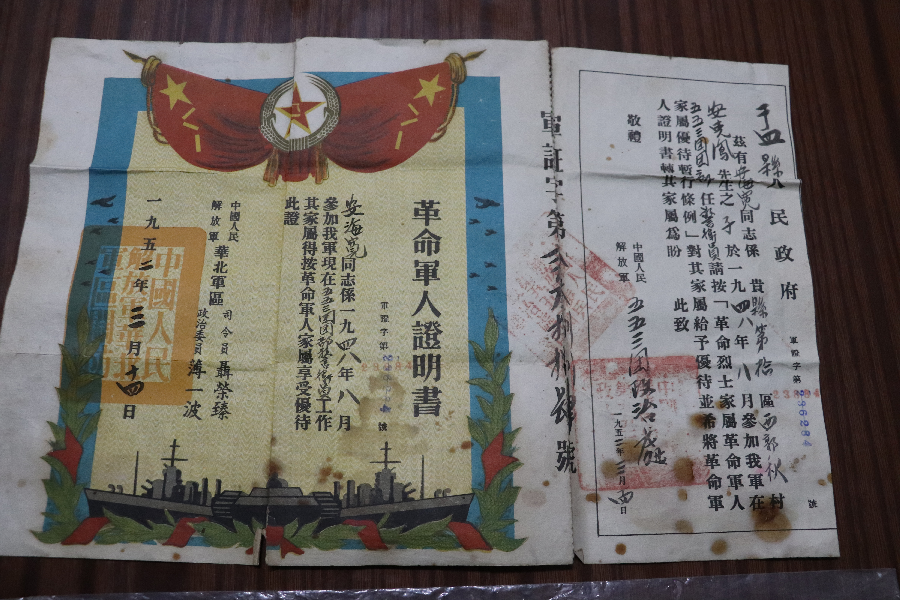 盂縣人民政府
茲有安海寬同志係 貴縣第拾區西郭村
先生之子於一九四八年 八月參加我軍在
五五三團團部任警衛員請按「革命烈士家屬革命軍人
家屬優待暫行條例」對其家屬給予優待並希將革命軍
人證明書轉其家屬為盼 此致
敬禮
中國人民
解放軍 五五三團政治處
一九五二年三月 四日
軍證字第 236284 號
革命軍人證明書
軍證字第 號
安海寬同志係一九四八年八月
參加我軍現在五五三團團部警衛員工作
其家屬得按革命軍人家屬享受優待
此證
中國人民
解放軍 華北軍區
司令員 聶榮臻
政治委員 薄一波
一九五二年三月十四日